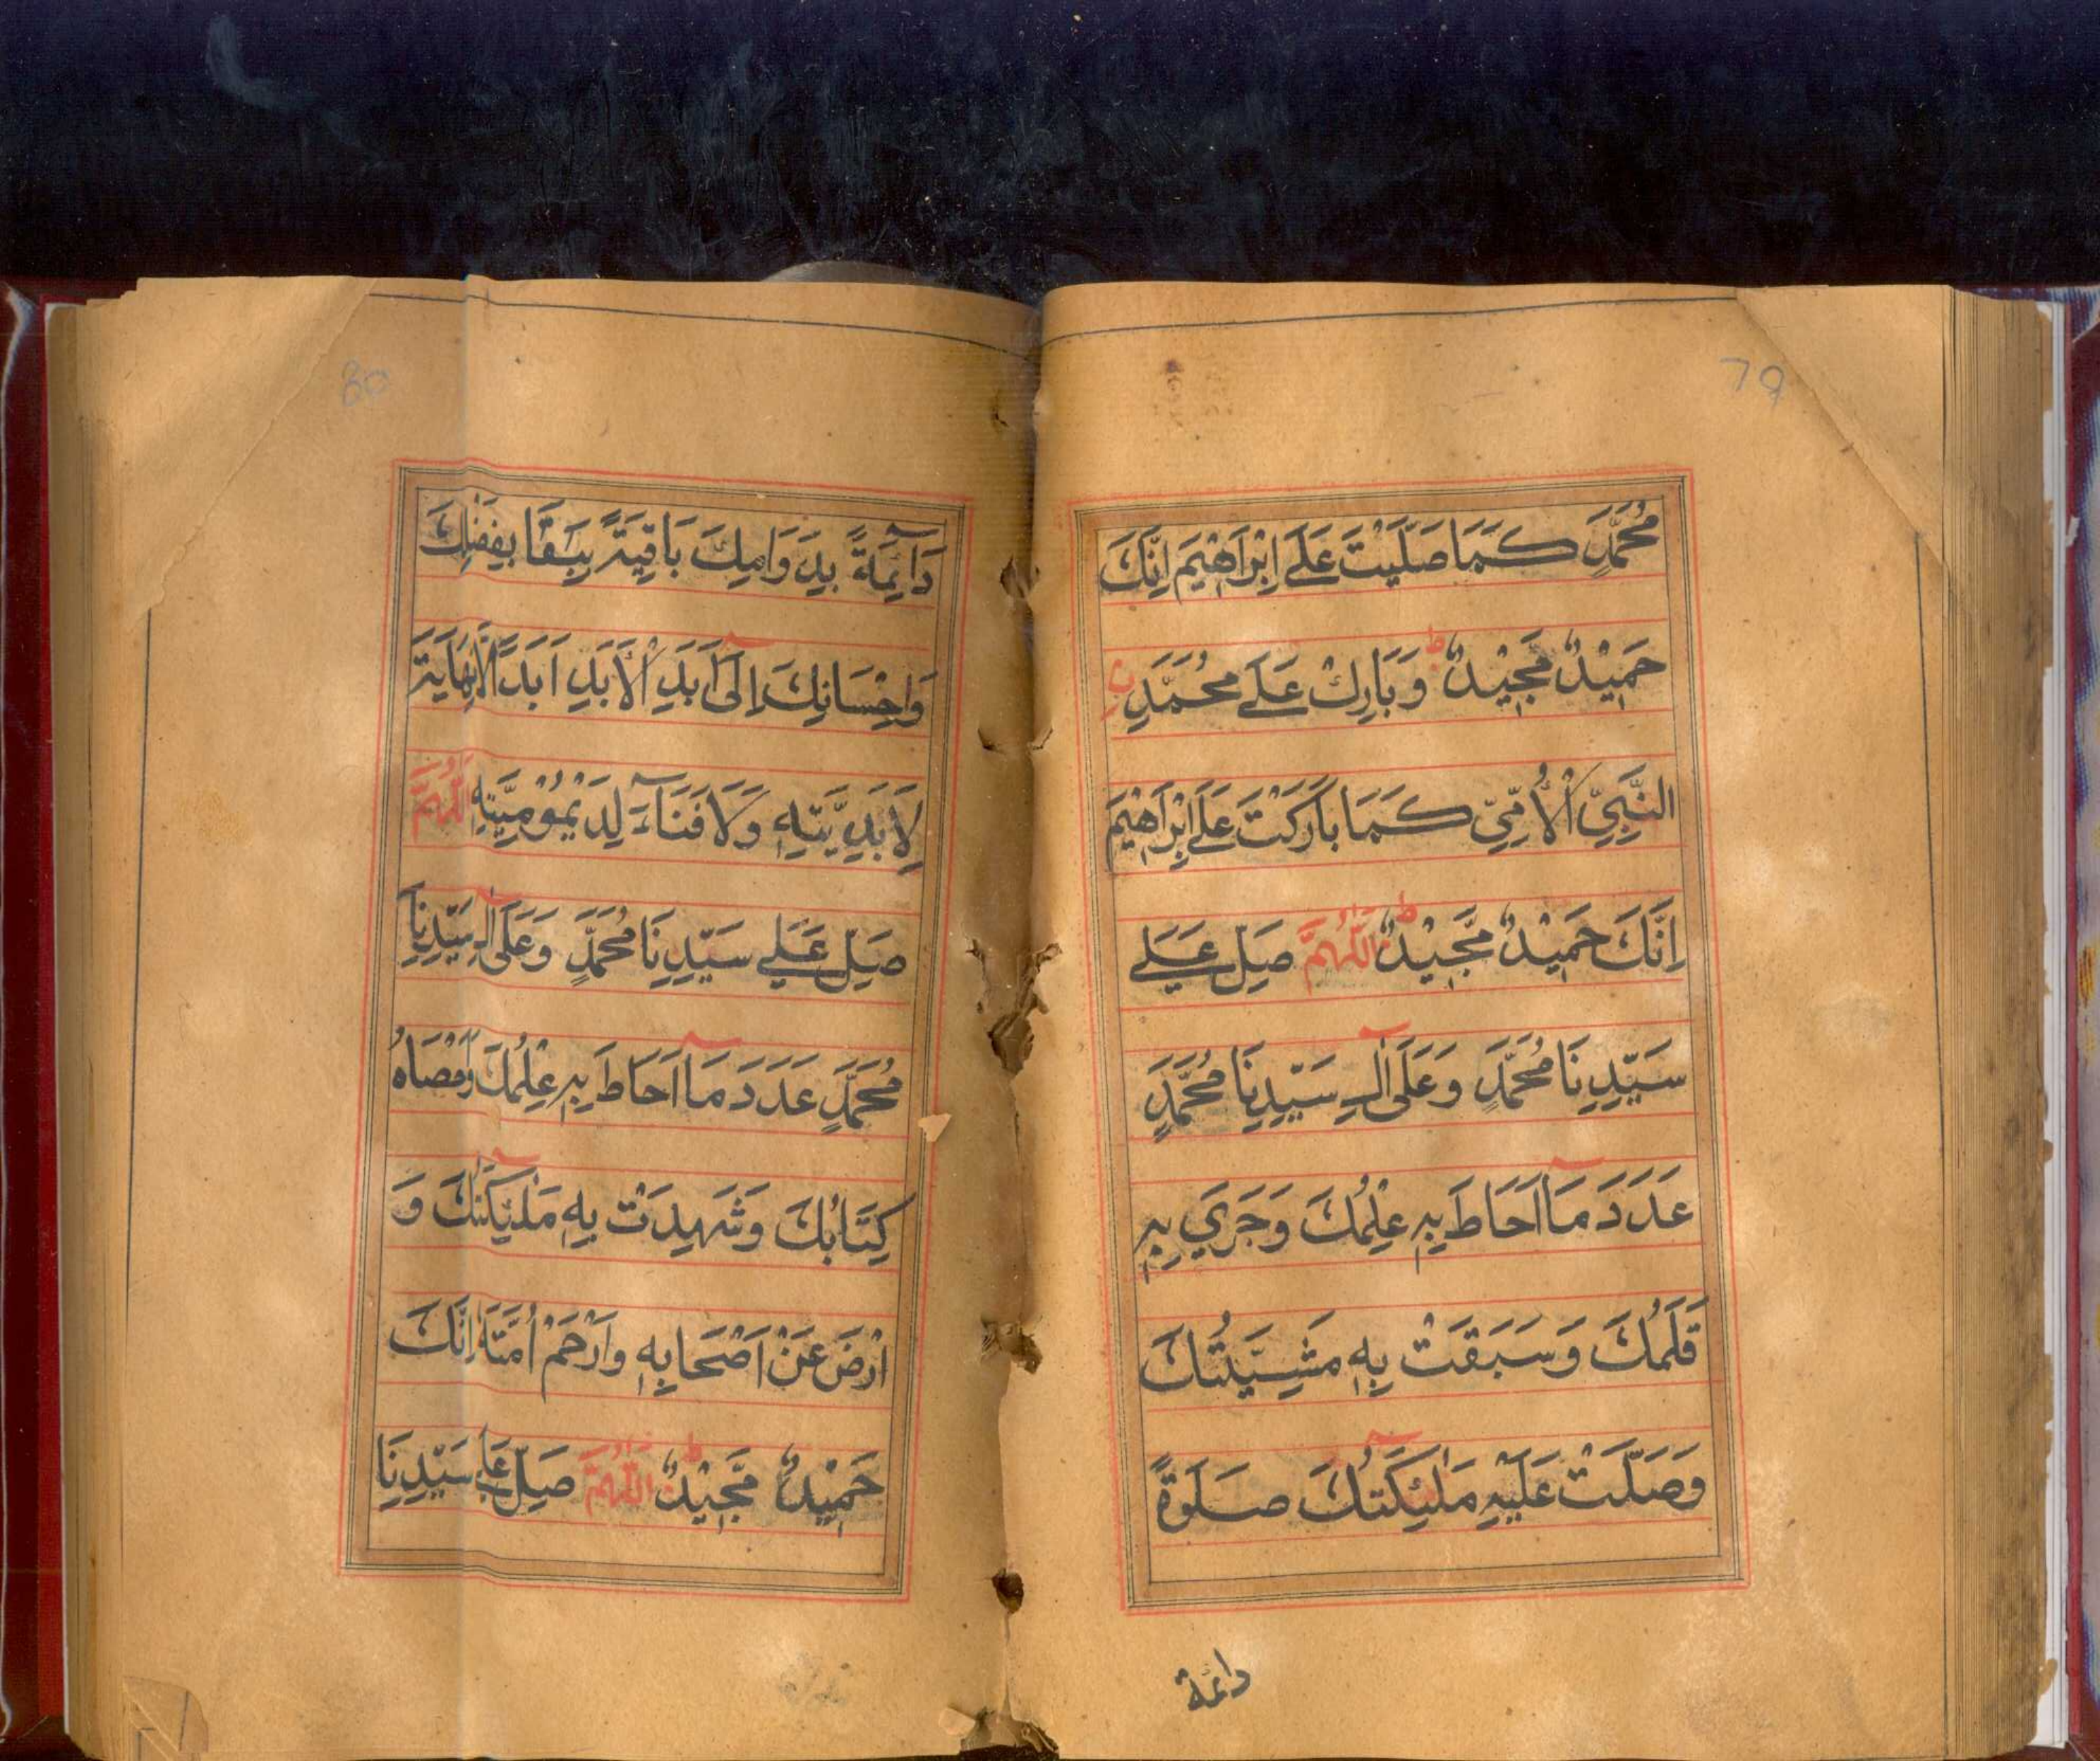 79
مُحَمَّدٍ كَمَا صَلَّيْتَ عَلٰى اِبْرَاهِيْمَ اِنَّكَ
حَمِيْدٌ مَّجِيْدٌ ط وَبَارِكْ عَلٰى مُحَمَّدِ نِ
النَّبِيِّ الْاُمِّيِّ كَمَا بَارَكْتَ عَلٰى اِبْرَاهِيْمَ
اِنَّكَ حَمِيْدٌ مَّجِيْدٌ ط اَللّٰهُمَّ صَلِّ عَلٰى
سَيِّدِنَا مُحَمَّدٍ وَعَلٰى اٰلِ سَيِّدِنَا مُحَمَّدٍ
عَدَدَ مَا اَحَاطَ بِهٖ عِلْمُكَ وَجَرٰي بِهٖ
قَلَمُكَ وَسَبَقَتْ بِهٖ مَشِيَّتُكَ
وَصَلَّتْ عَلَيْهِ مَلٰئِكَتُكَ صَلٰوةً
دائمة
80
دَآئِمَةً بِدَوَامِكَ بَاقِيَةً بِبَقَا بِفَضْلِكَ
وَاِحْسَانِكَ اِلٰى اَبَدِ الْاَبَدِ اَبَدًا لَا نِهَايَةَ
لِاَبَدِيَّتِهٖ وَلَا فَنَآءَ لِدَيْمُوْمِيَّتِهٖ اَللّٰهُمَّ
صَلِّ عَلٰى سَيِّدِنَا مُحَمَّدٍ وَعَلٰى اٰلِ سَيِّدِنَا
مُحَمَّدٍ عَدَدَ مَا اَحَاطَ بِهٖ عِلْمُكَ
كِتَابُكَ وَشَهِدَتْ بِهٖ مَلٰئِكَتُكَ وَ
ارْضَ عَنْ اَصْحَابِهٖ وَارْحَمْ اُمَّتَهٗ اِنَّكَ
حَمِيْدٌ مَّجِيْدٌ ط اَللّٰهُمَّ صَلِّ عَلٰى سَيِّدِنَا